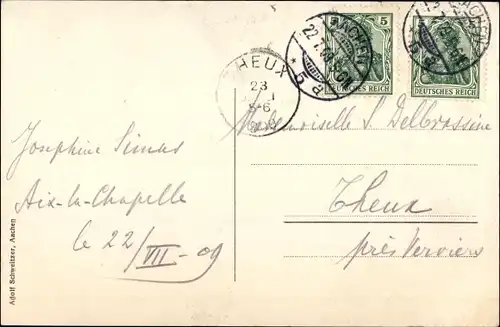 5
5
AACHEN
22.7.09
* 5 a
DEUTSCHES REICH
AACHEN
* 5 a
DEUTSCHES REICH
THEUX
23
Mademoiselle S. Delbrassine
Theux
près Verviers
Joséphine Simus
Aix-la-Chapelle
le 22/VII-09
Adolf Schweitzer, Aachen